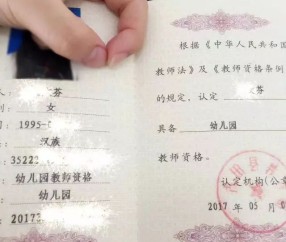 芬
女
1995-0
汉族
35222
幼儿园教师资格
幼儿园
20173
根据《中华人民共和国
教师法》及《教师资格条例
的规定，认定 芬
具备 幼儿园
教师资格。
认定机构(公章
2017 年 05 月 0